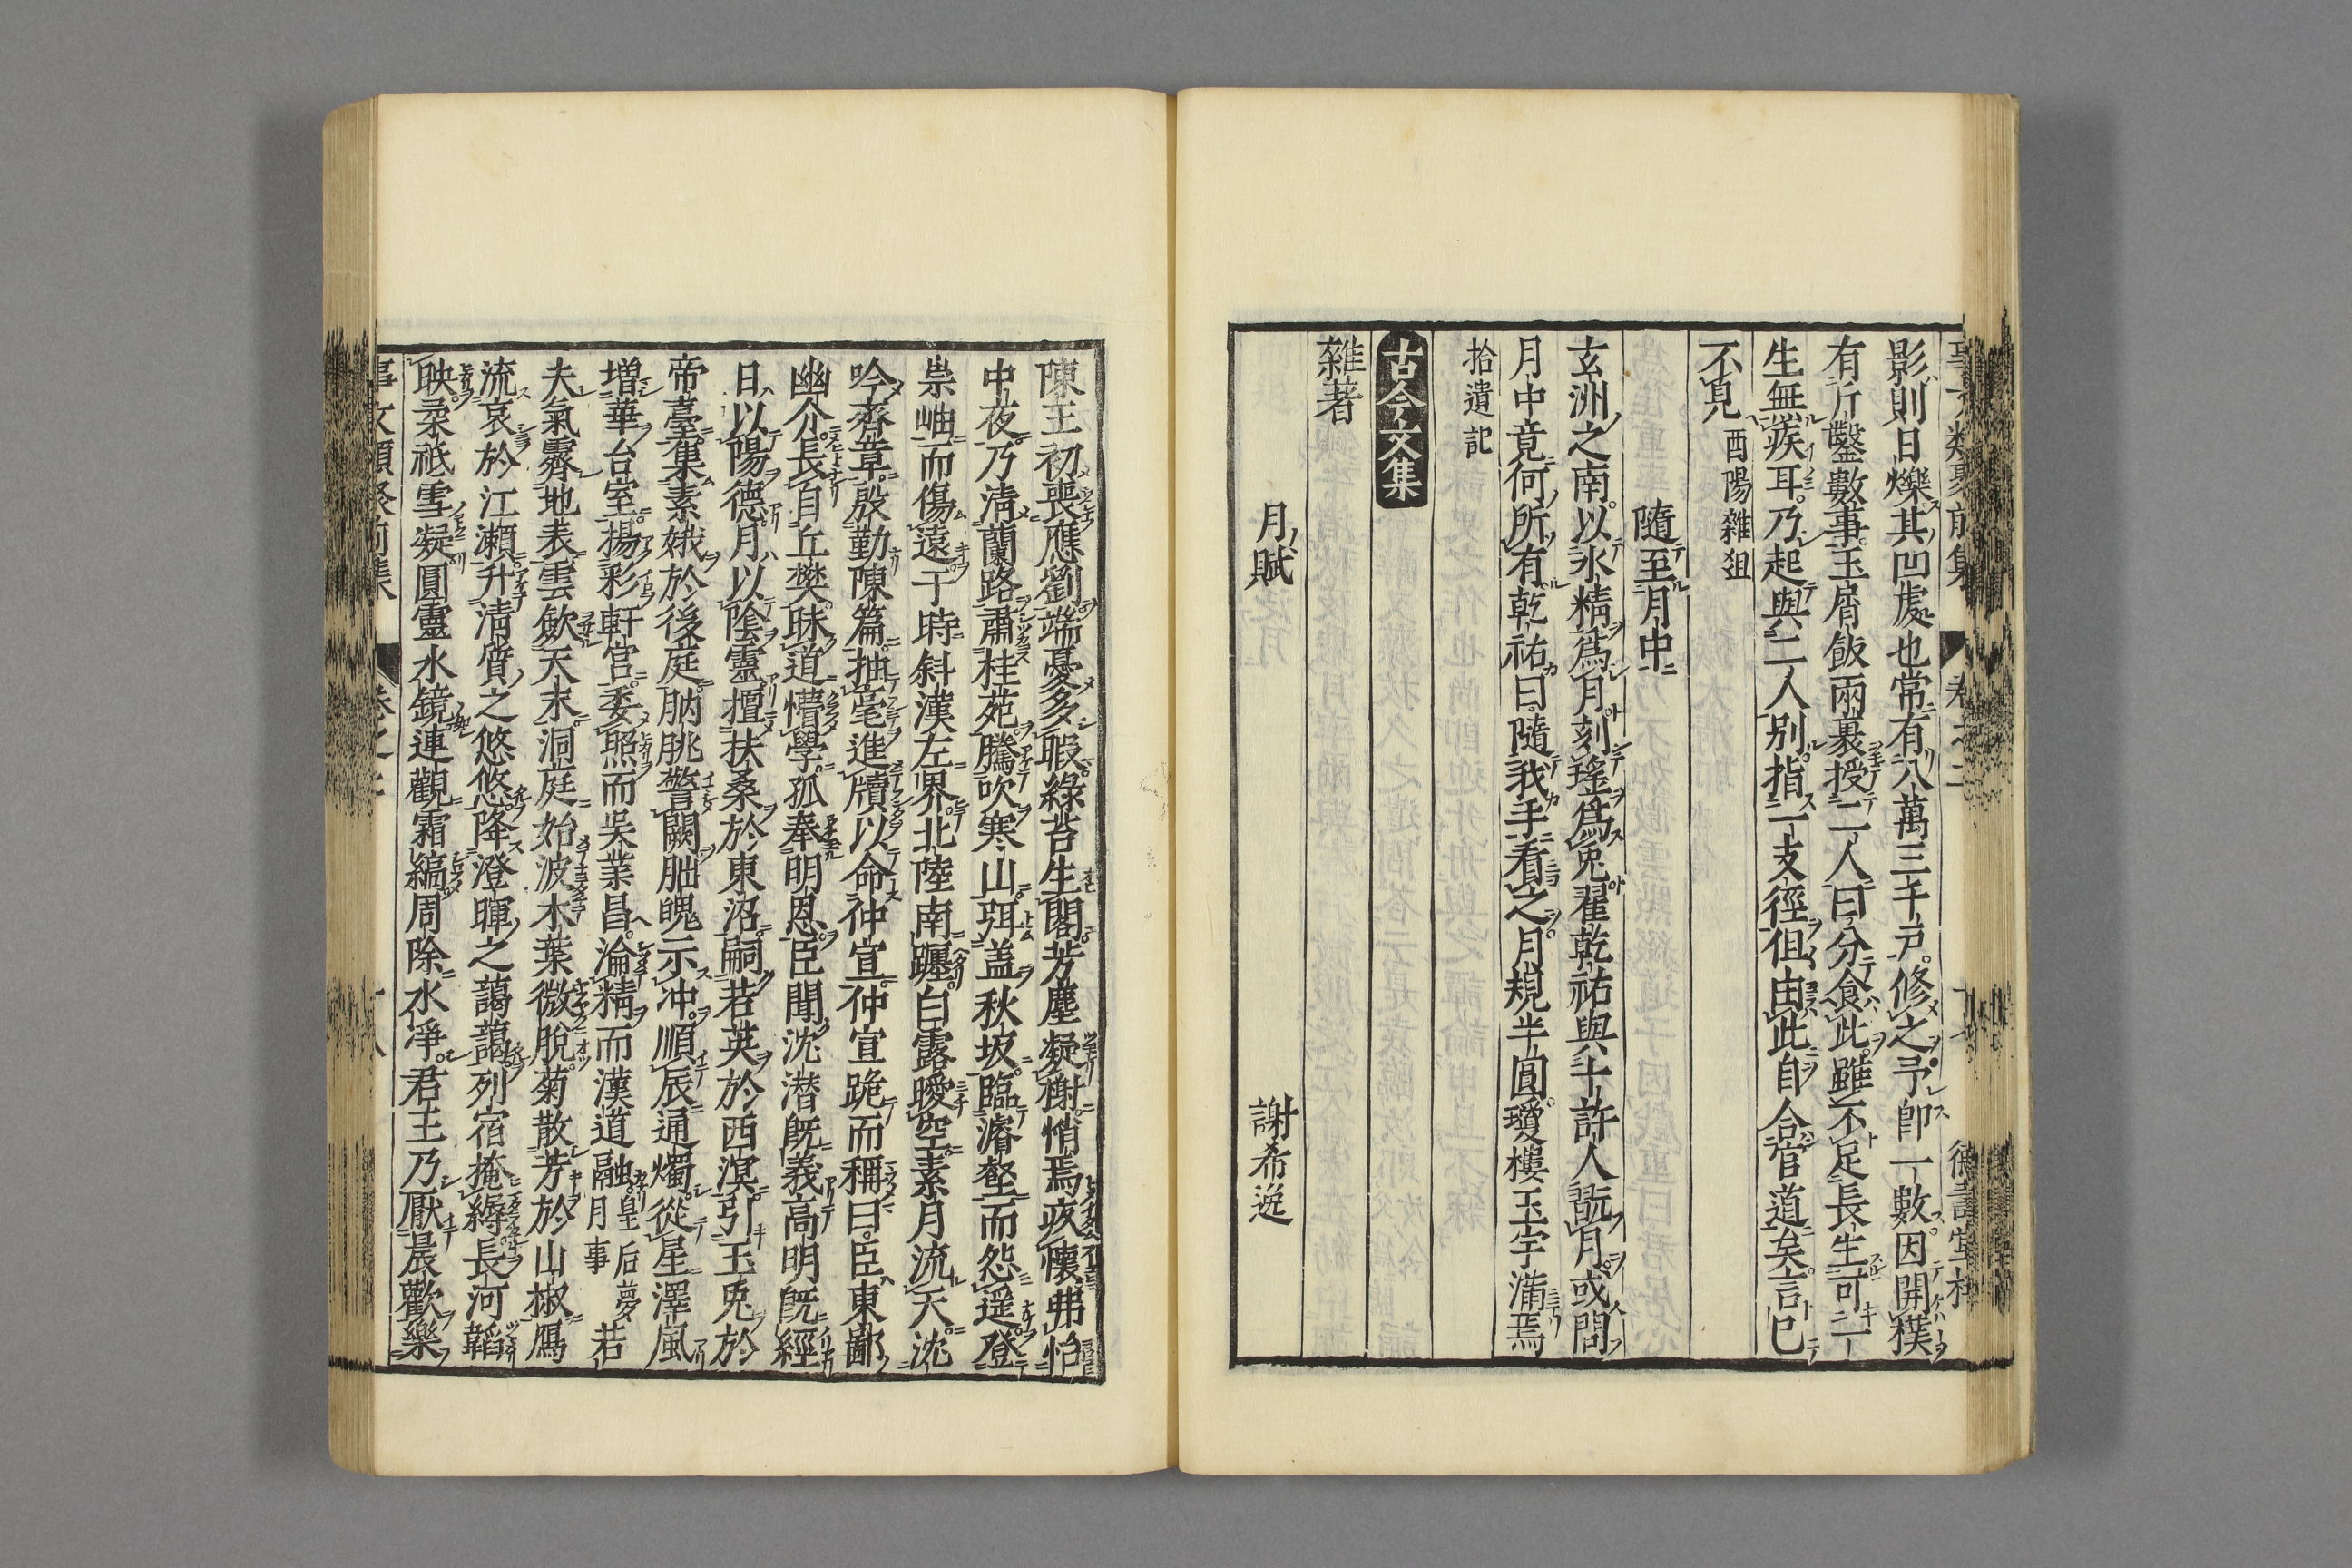 影則日爍其凹處也常有八萬三千戶修之予卽一數因開襆
有斤鑿數事玉屑飯兩裹授二人曰分食此雖不足長生可一
生無疾耳乃起與二人別指一支徑但由此自合管道矣言已
不見 酉陽雜俎
隨至月中
玄洲之南以水精爲月刻瑤爲兎翟乾祐與十許人翫月或問
月中竟何所有乾祐曰隨我手看之月規半圓瓊樓玉宇滿焉
拾遺記
古今文集
雜著
月賦 謝希逸
陳王初喪應劉端憂多暇綠苔生閣芳塵凝榭悄焉疚懷弗怡
中夜乃淸蘭路肅桂苑騰吹寒山弭盖秋坂臨濬壑而怨遥登
崇岫而傷遠于時斜漢左界北陸南躔白露曖空素月流天沈
吟齊章殷勤陳篇抽毫進牘以命仲宣仲宣跪而稱曰臣東鄙
幽介長自丘樊昧道懵學孤奉明恩臣聞沈潜旣義高明旣經
日以陽德月以陰靈擅扶桑於東沼嗣若英於西溟引玉兎於
帝臺集素娥於後庭朒朓警闕朏魄示冲順辰通燭從星澤風
增華台室揚彩軒宮委照而吳業昌淪精而漢道融 皇后夢月事 若
夫氣霽地表雲歛天末洞庭始波木葉微脫菊散芳於山椒鴈
流哀於江瀨升淸質之悠悠降澄暉之藹藹列宿掩縟長河韜
映柔祇雪凝圓靈水鏡連觀霜縞周除水淨君王乃厭晨歡樂